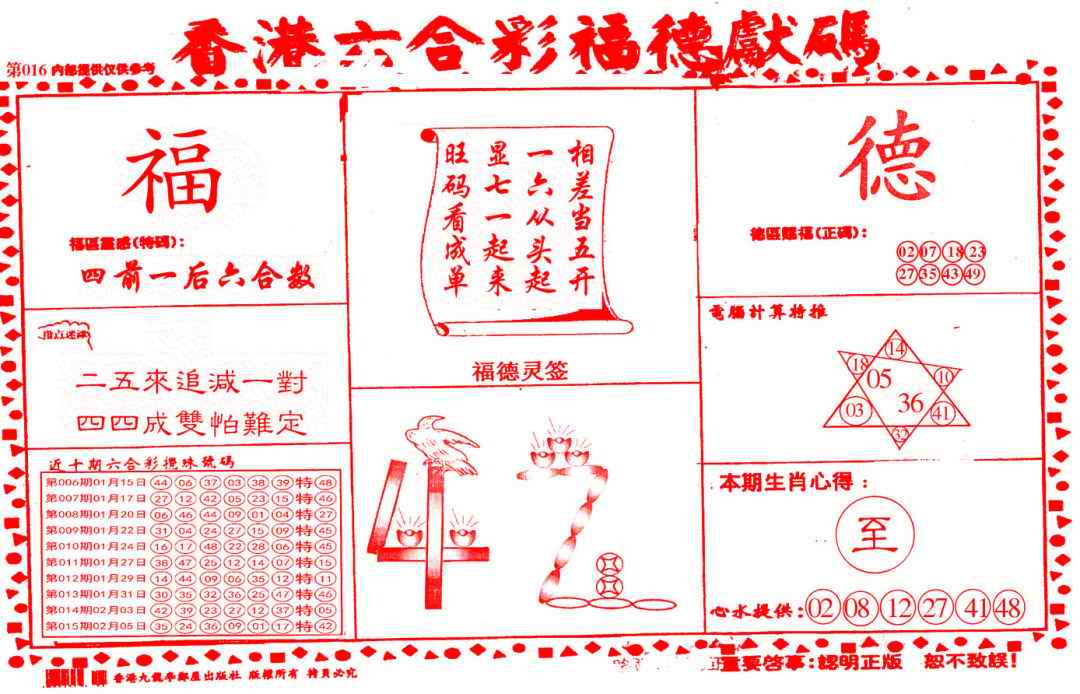 香港六合彩福德獻碼
第016 内部提供仅供参考
福
福區靈感(特碼):
四前一后六合数
指点迷津
二五來追減一對
四四成雙怕難定
近十期六合彩攪珠號碼
第006期01月15日 44 06 37 03 38 39 特 48
第007期01月17日 27 12 42 05 23 15 特 46
第008期01月20日 06 46 44 09 01 04 特 27
第009期01月22日 31 04 24 27 15 09 特 45
第010期01月24日 16 17 48 22 28 06 特 45
第011期01月27日 38 47 25 12 14 07 特 15
第012期01月29日 14 44 09 06 35 12 特 11
第013期01月31日 30 35 32 36 25 47 特 46
第014期02月03日 42 39 23 27 12 37 特 05
第015期02月05日 35 24 36 09 01 17 特 42
相差当五开
一六从头起
显七一起来
旺码看成单
福德灵签
德
德區賜福(正碼):
02 07 18 23
27 35 43 49
電腦計算特推
14
18 10
05
36
03 41
32
本期生肖心得:
至
心水提供:02 08 12 27 41 48
香港九龍李鄭屋出版社 版權所有 特員必究
重要啓事:認明正版 恕不致誤!